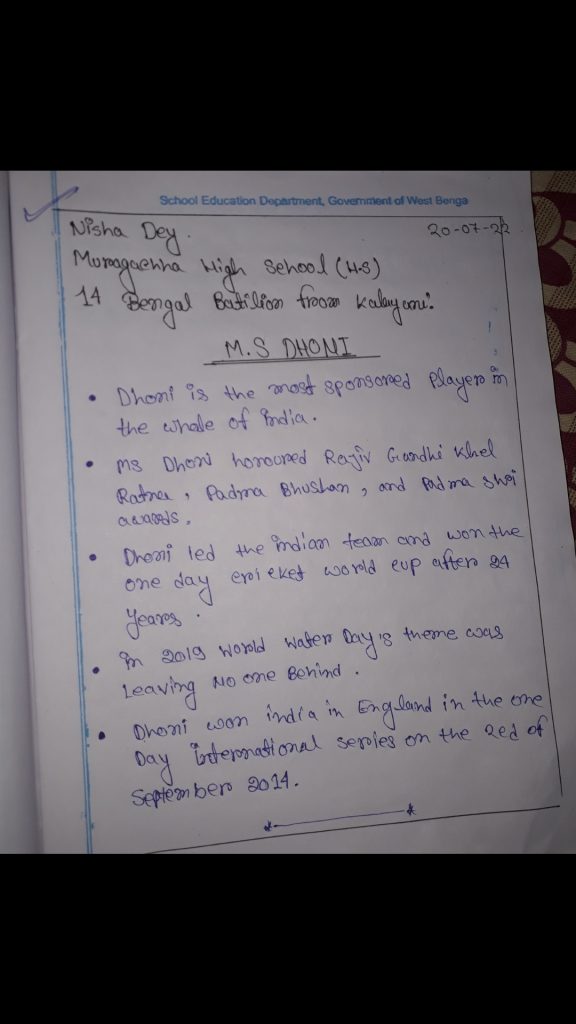 School Education Department, Government of West Benga
Nisha Dey.
20-07-22
Muragachha High School (H.S)
14 Bengal Batilion from Kalyani.
M.S DHONI
• Dhoni is the most sponsored Player in
the whole of India.
• MS Dhoni honoured Rajiv Gandhi Khel
Ratna, Padma Bhushan, and Padma Shri
awards.
• Dhoni led the indian team and won the
one day cricket world cup after 24
Years.
• In 2019 World Water Day's theme was
Leaving No one Behind.
• Dhoni won india in England in the one
Day international series on the 2ed of
September 2014.